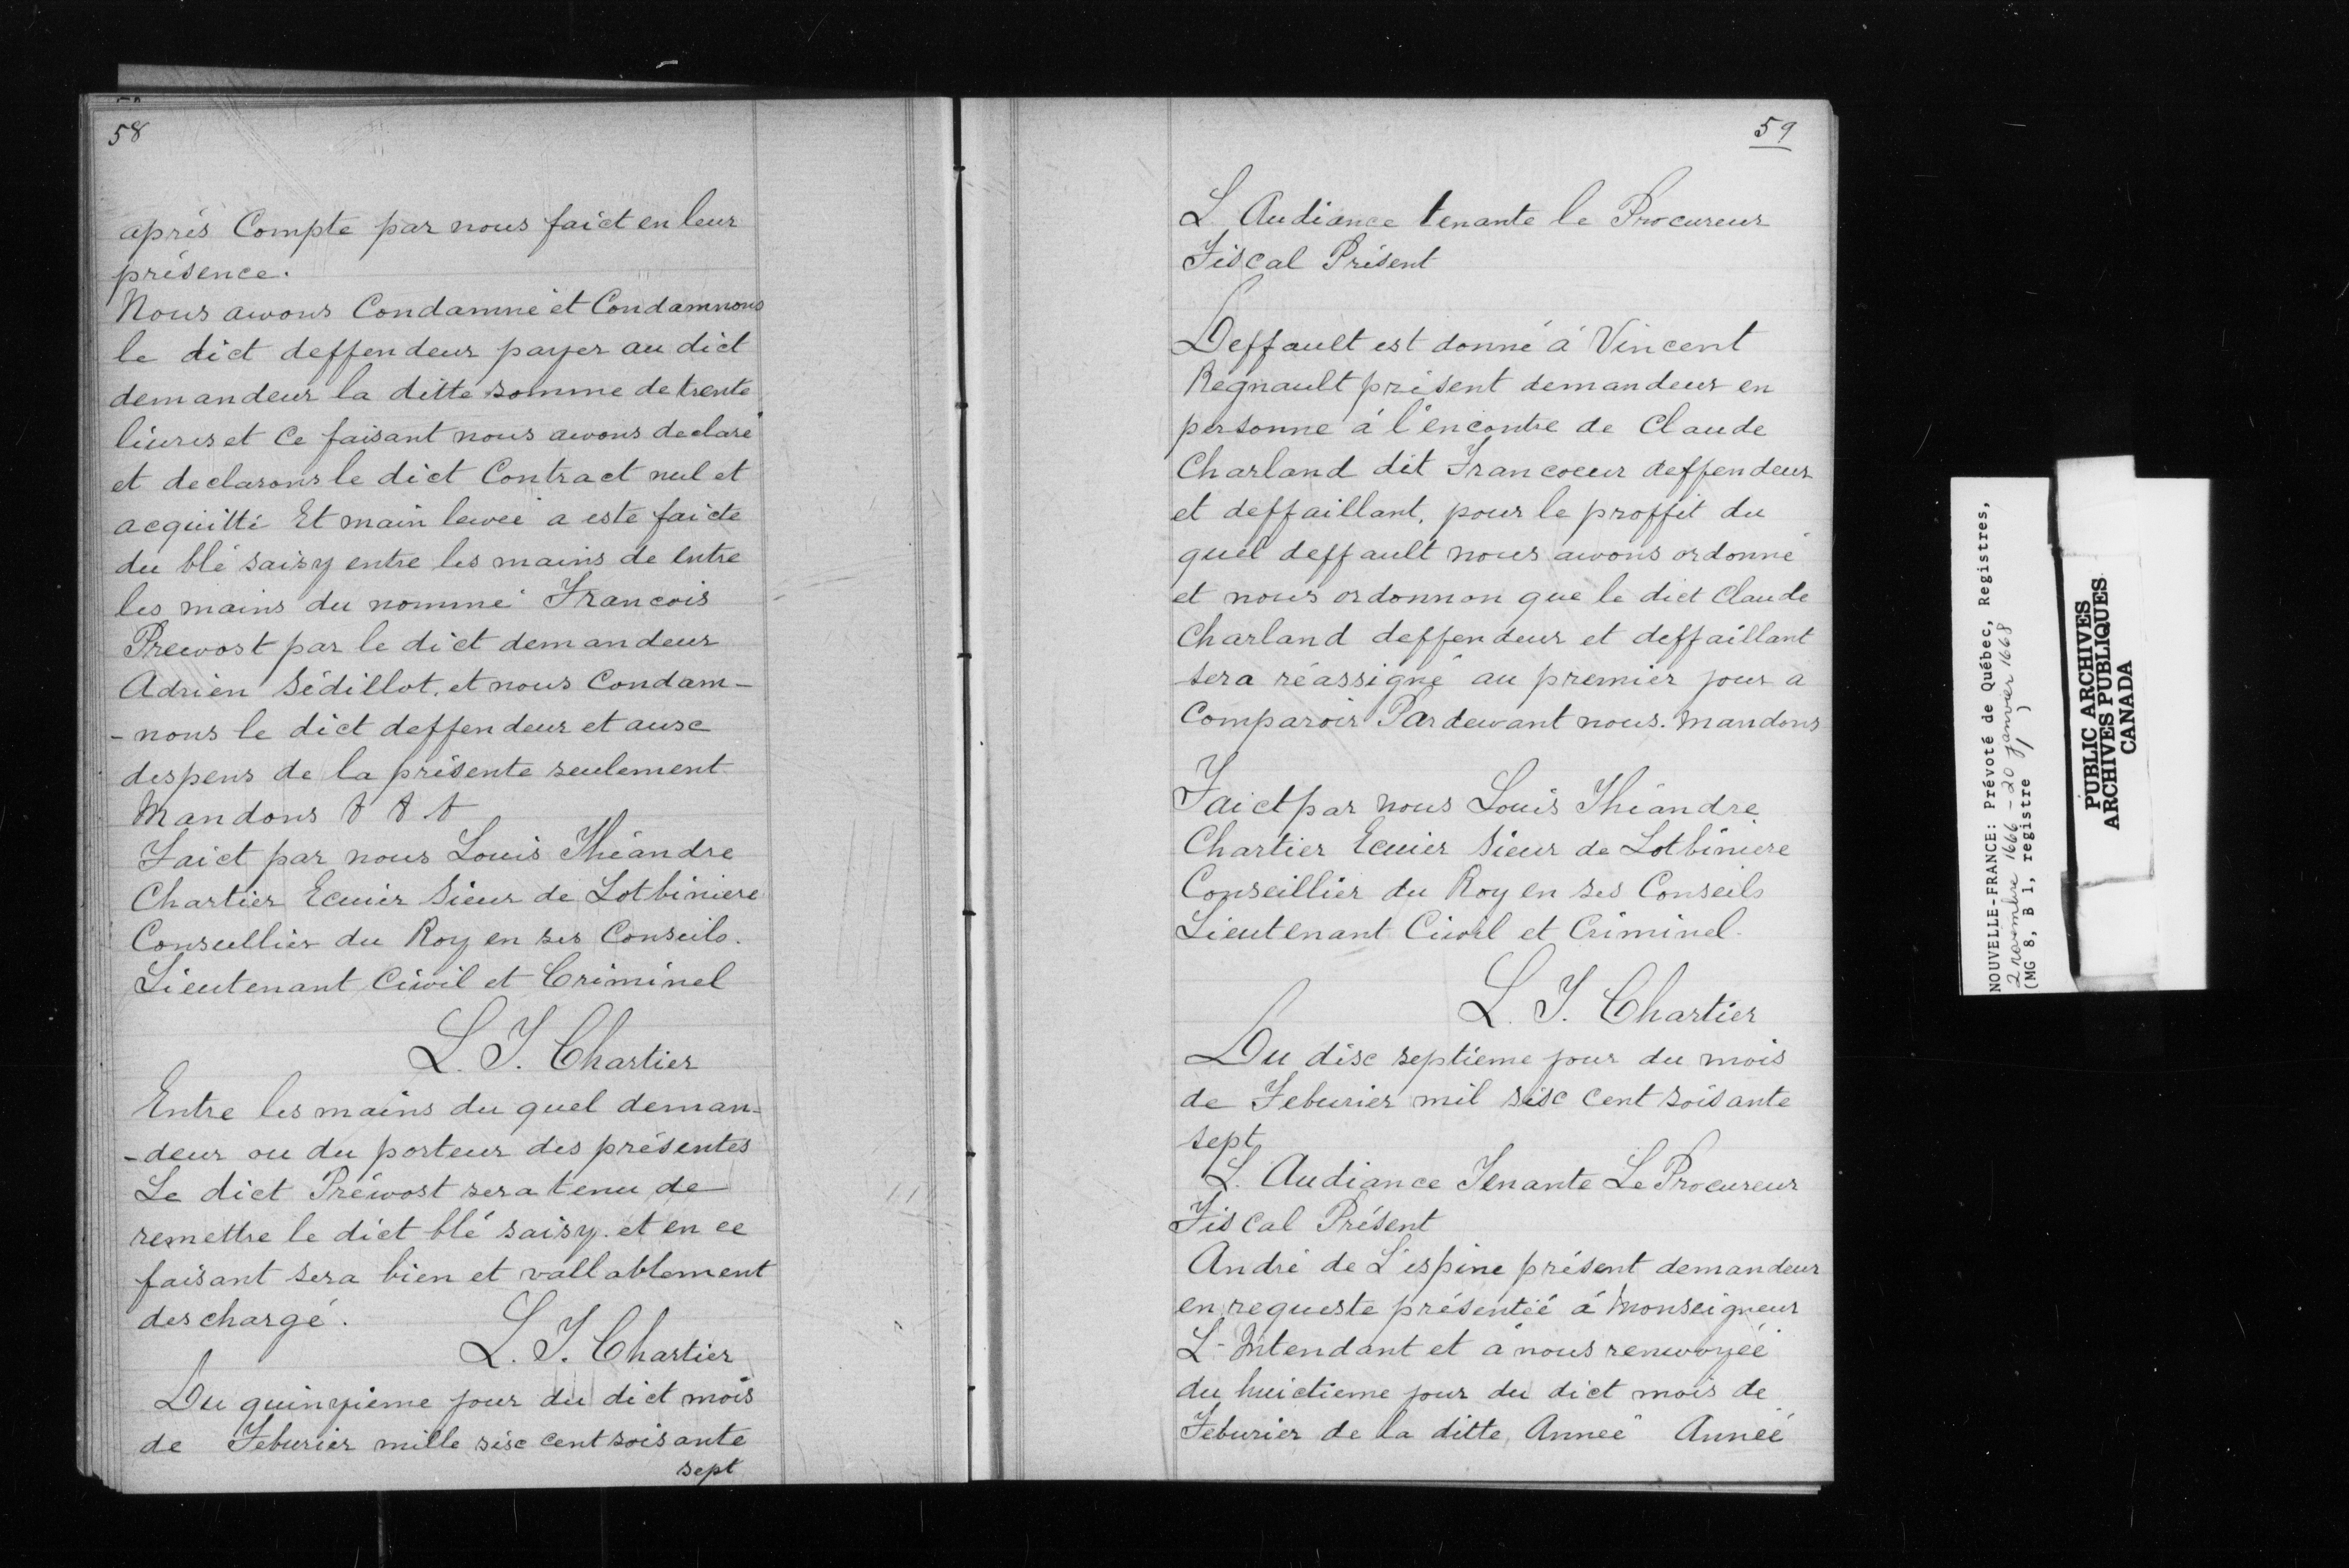 58
après Compte par nous faict en leur
présence.
Nous avons Condamné et Condamnons
le dict deffendeur payer au dict
demandeur la ditte somme de trente
liures et Ce faisant nous avons declaré
et declarons le dict Contract nul et
acquitté Et main levée a esté faicte
du blé saisy entre les mains de entre
les mains du nommé Francois
Prevost par le dict demandeur
Adrien Sédillot. et nous Condam-
-nons le dict deffendeur et ausc
despens de la présente seulement
Mandons & & &
Faict par nous Louis Théandre
Chartier Ecuier Sieur de Lotbiniere
Conseillier du Roy en ses Conseils.
Lieutenant Civil et Criminel
L. T. Chartier
Entre les mains du quel deman-
-deur ou du porteur des présentes
Le dict Prévost sera tenu de
remettre le dict blé saisy. et en ce
faisant sera bien et vallablement
deschargé.
L. T. Chartier
Du quinzième jour du dict mois
de Feburier mille sisc cent soisante
sept
59
L Audiance tenante le Procureur
Fiscal Présent
Deffault est donné á Vincent
Regnault présent demandeur en
personne á l'encontre de Claude
Charland dit Francoeur deffendeur
et deffaillant, pour le proffit du
quel deffault nous avons ordonné
et nous ordonnon que le dict Claude
Charland deffendeur et deffaillant
sera réassigné au premier jour a
Comparoir Pardevant nous. Mandons
Faict par nous Louis Théandre
Chartier Ecuier Sieur de Lotbiniere
Conseillier du Roy en ses Conseils
Lieutenant Civil et Criminel.
L. T. Chartier
Du disc septieme jour du mois
de Feburier mil sisc Cent soisante
sept
L. Audiance Tenante Le Procureur
Fiscal Présent
André de L'espine présent demandeur
en requeste présentéé á Monseigneur
L-Intendant et á nous renvoyéé
du huictieme jour du dict mois de
Feburier de la ditte, Anneé Annéé
NOUVELLE-FRANCE: Prévoté de Québec, Registres,
2 novembre 1666 - 20 janvier 1668
(MG 8, B 1, registre 1)
PUBLIC ARCHIVES
ARCHIVES PUBLIQUES
CANADA